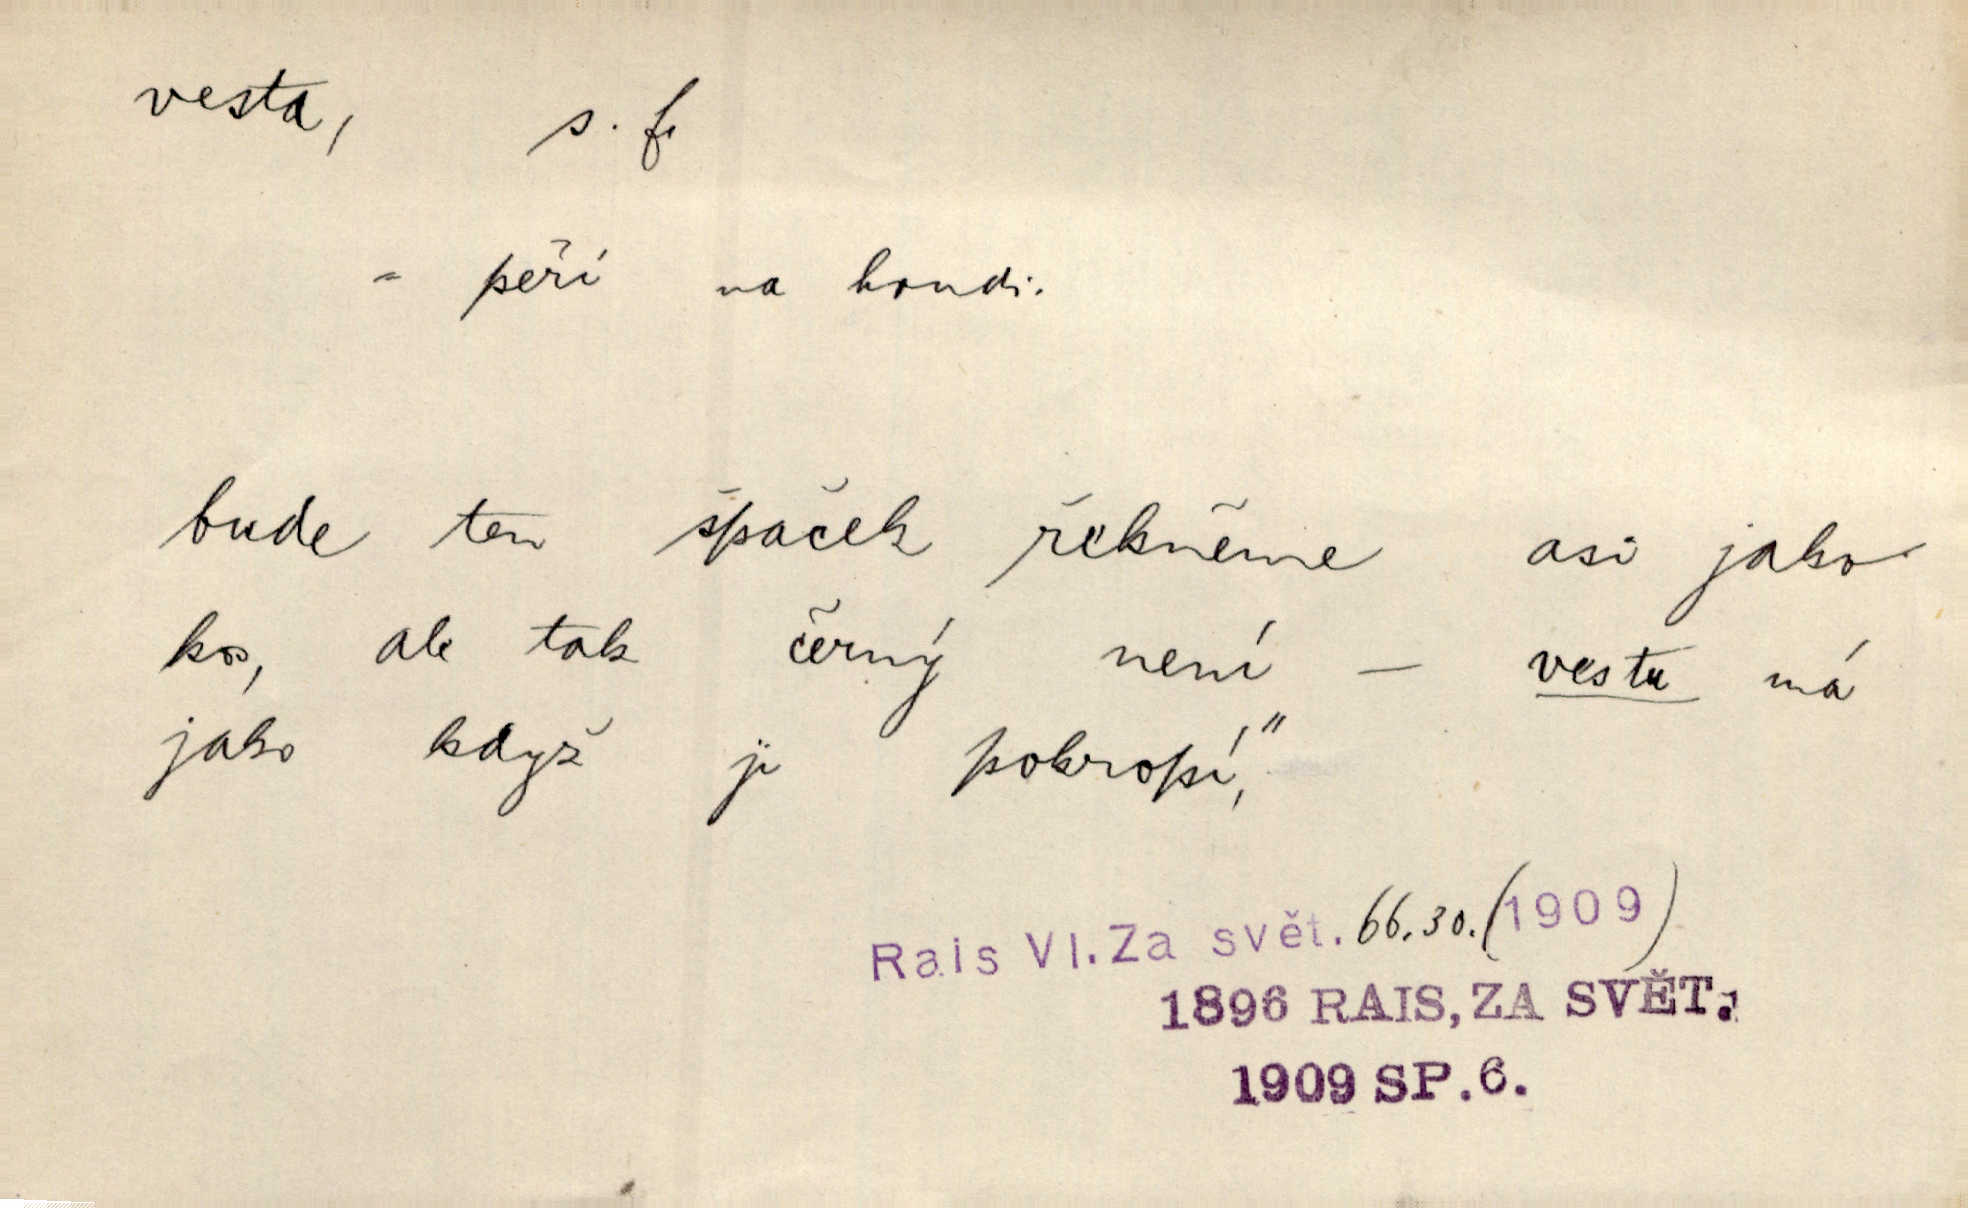 vesta, s. f.
= peří na hrudi.
bude ten špaček řekněme asi jako
kos, ale tak černý není — vestu má
jako když ji pokropí,"
Rais VI. Za svět. 66.30. (1909)
1896 RAIS, ZA SVĚT.
1909 SP. 6.